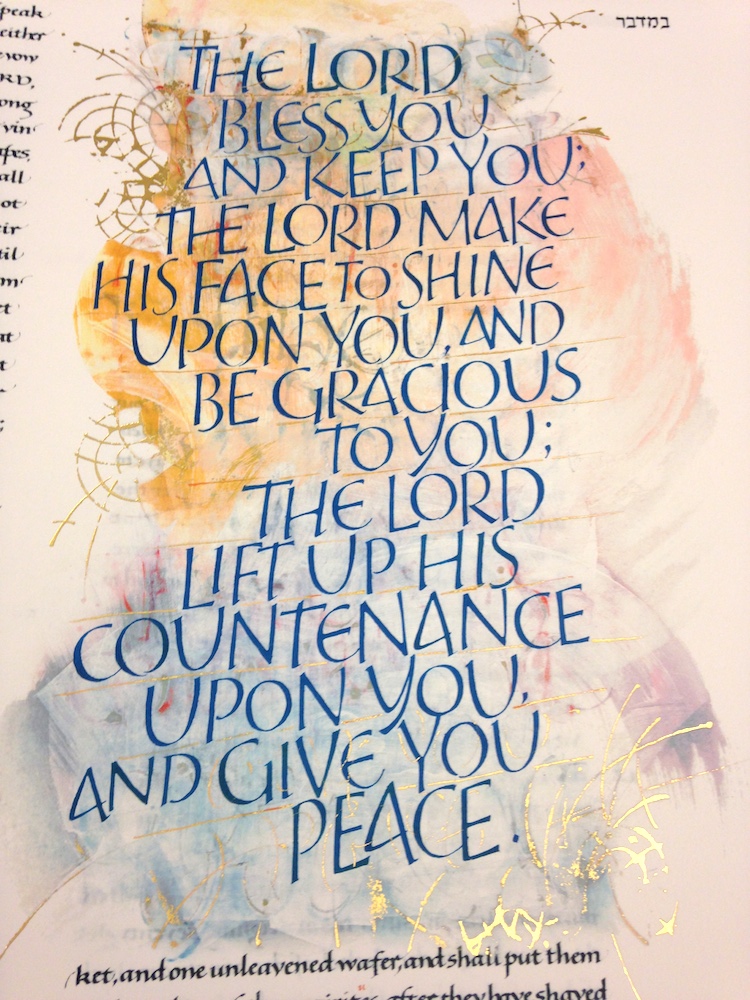 במדבר
speak
either
vow
ong
vin
all
ot
THE LORD
BLESS YOU
AND KEEP YOU;
THE LORD MAKE
HIS FACE TO SHINE
UPON YOU, AND
BE GRACIOUS
TO YOU;
THE LORD
LIFT UP HIS
COUNTENANCE
UPON YOU,
AND GIVE YOU
PEACE.
ket, and one unleavened wafer, and shall put them
after they have shaved